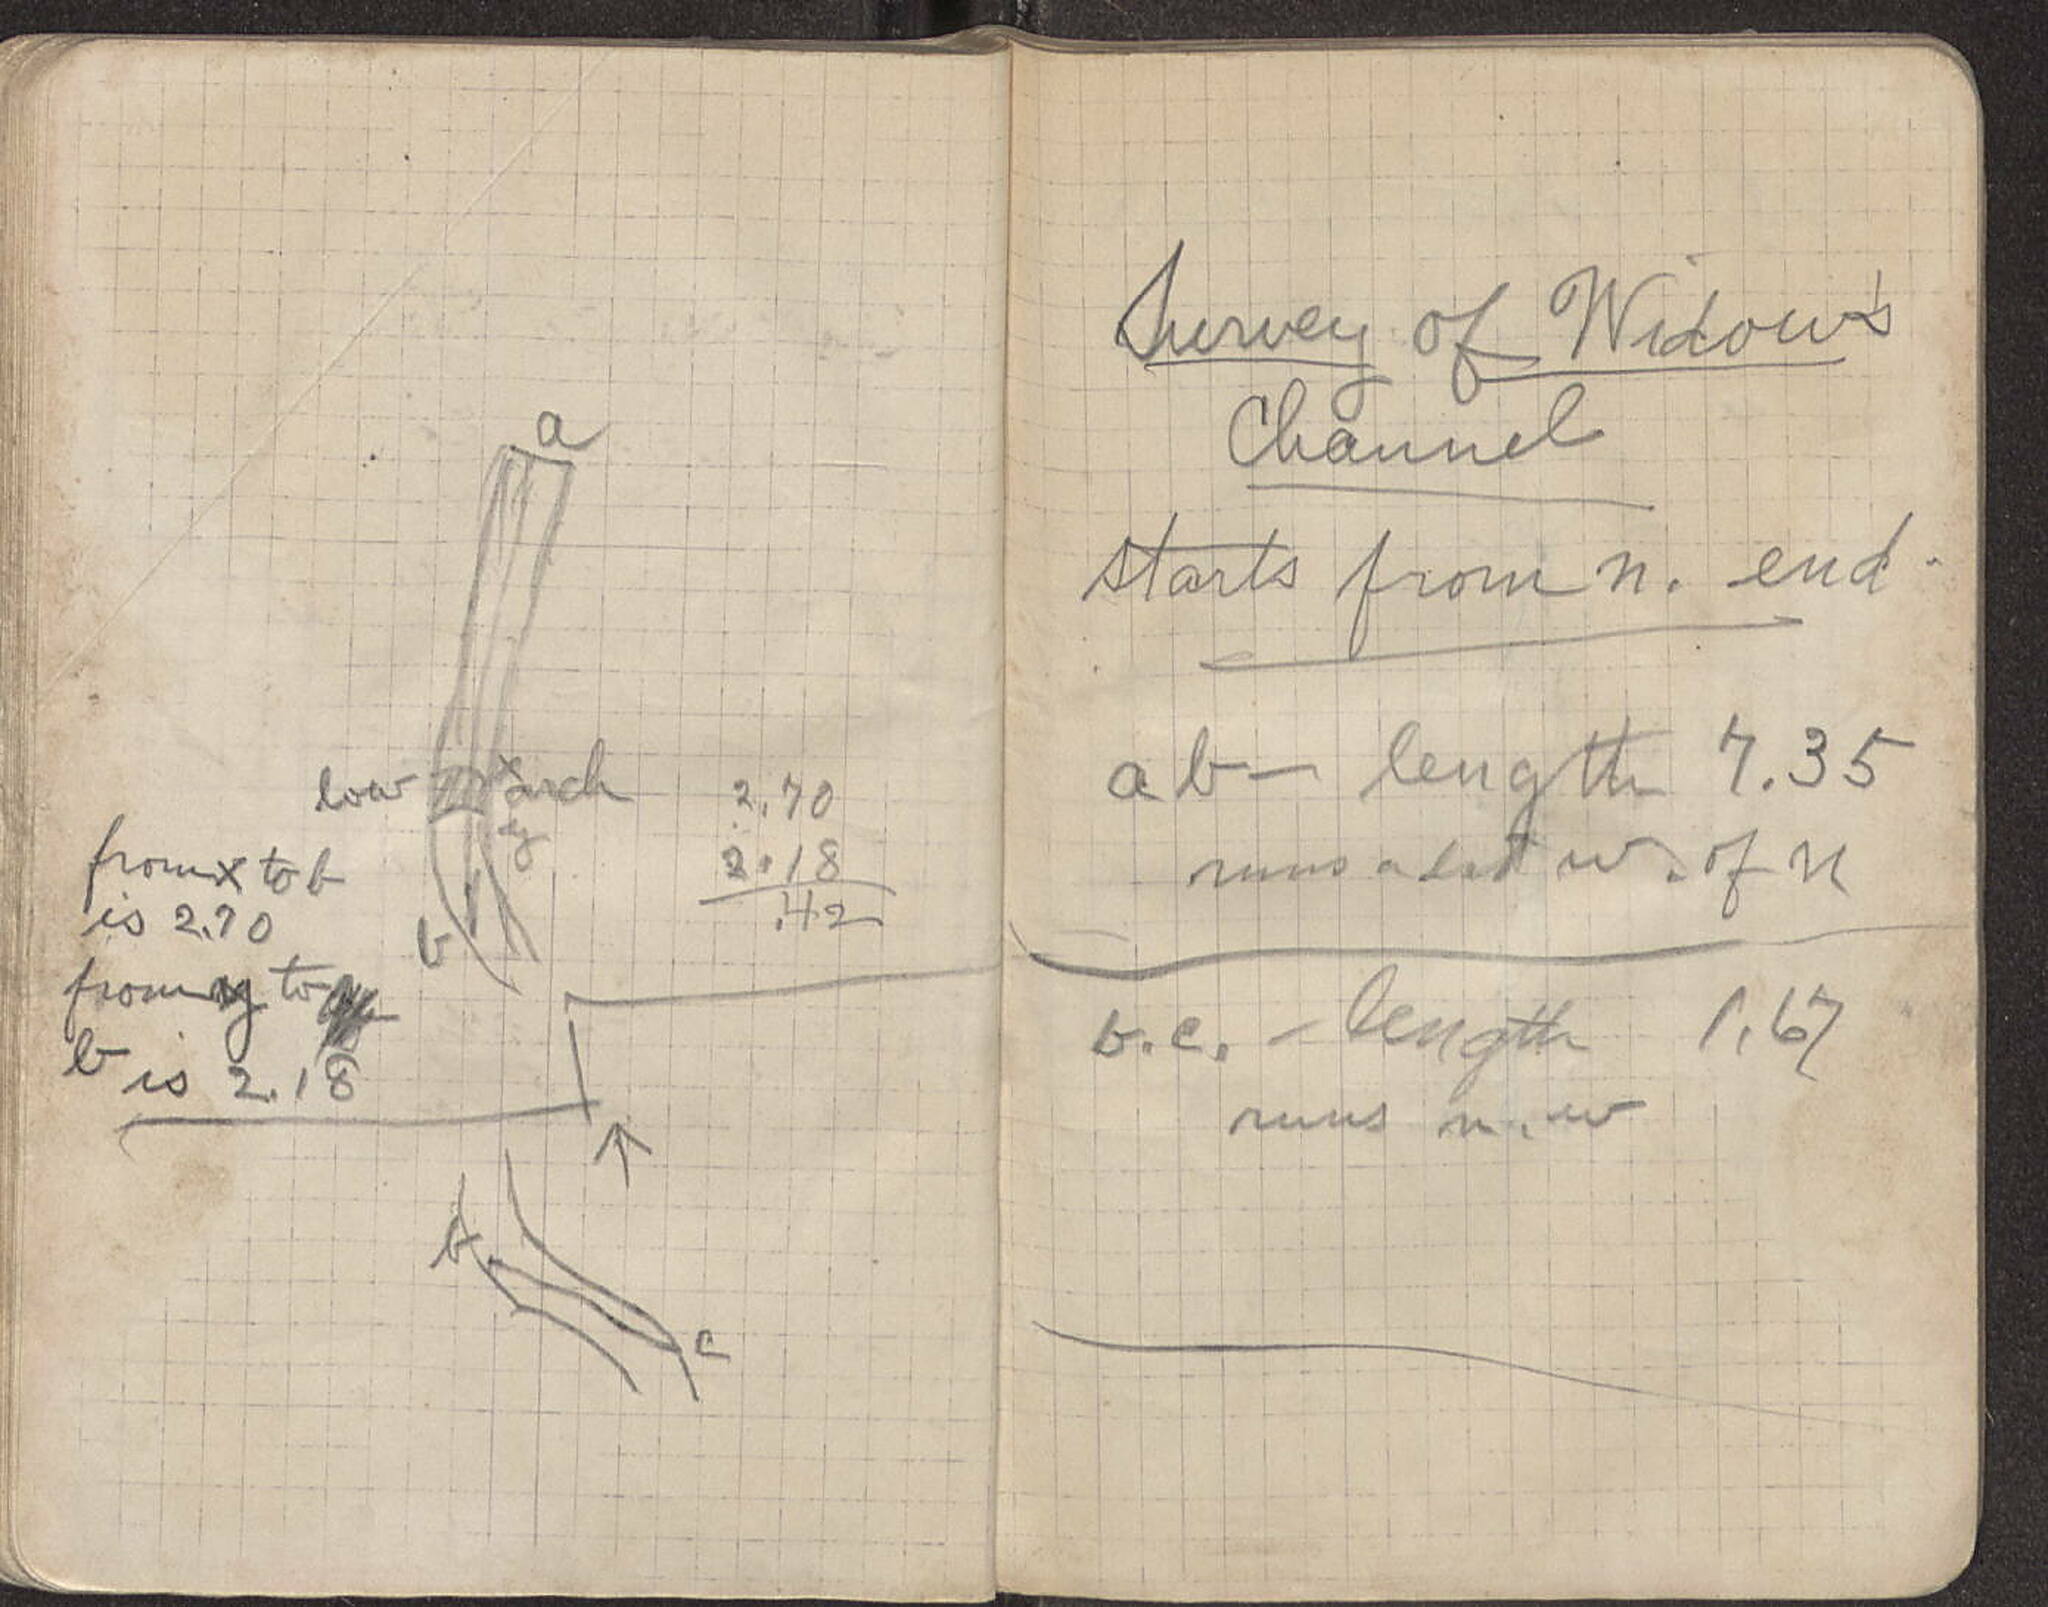 a
low x arch
y
2.70
2.18
.42
from x to b
is 2.70
b
from y to
b is 2.18
b
c
Survey of Widow's
Channel
starts from n. end.
ab - length 7.35
runs a bit w. of n
b.c. - length 1.67
runs n.w